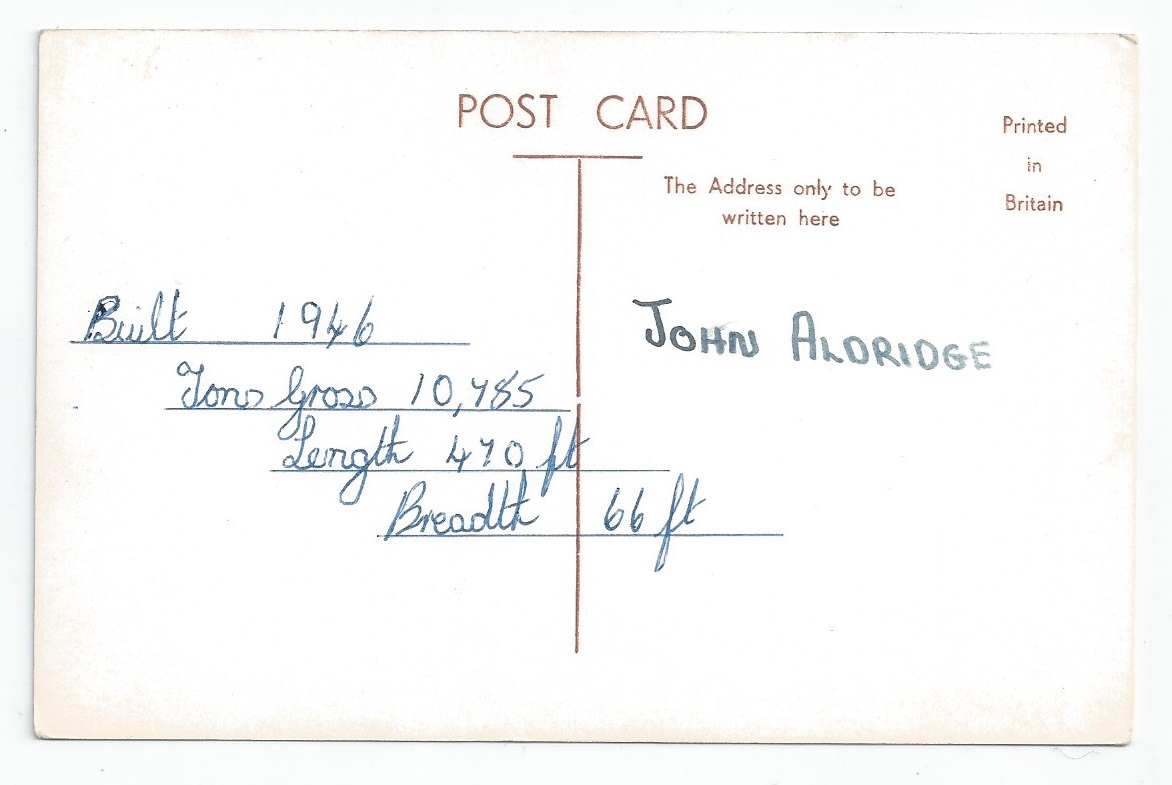 POST CARD
The Address only to be
written here
Printed
in
Britain
Built 1946
Tons Gross 10,785
Length 470 ft
Breadth 66 ft
JOHN ALDRIDGE